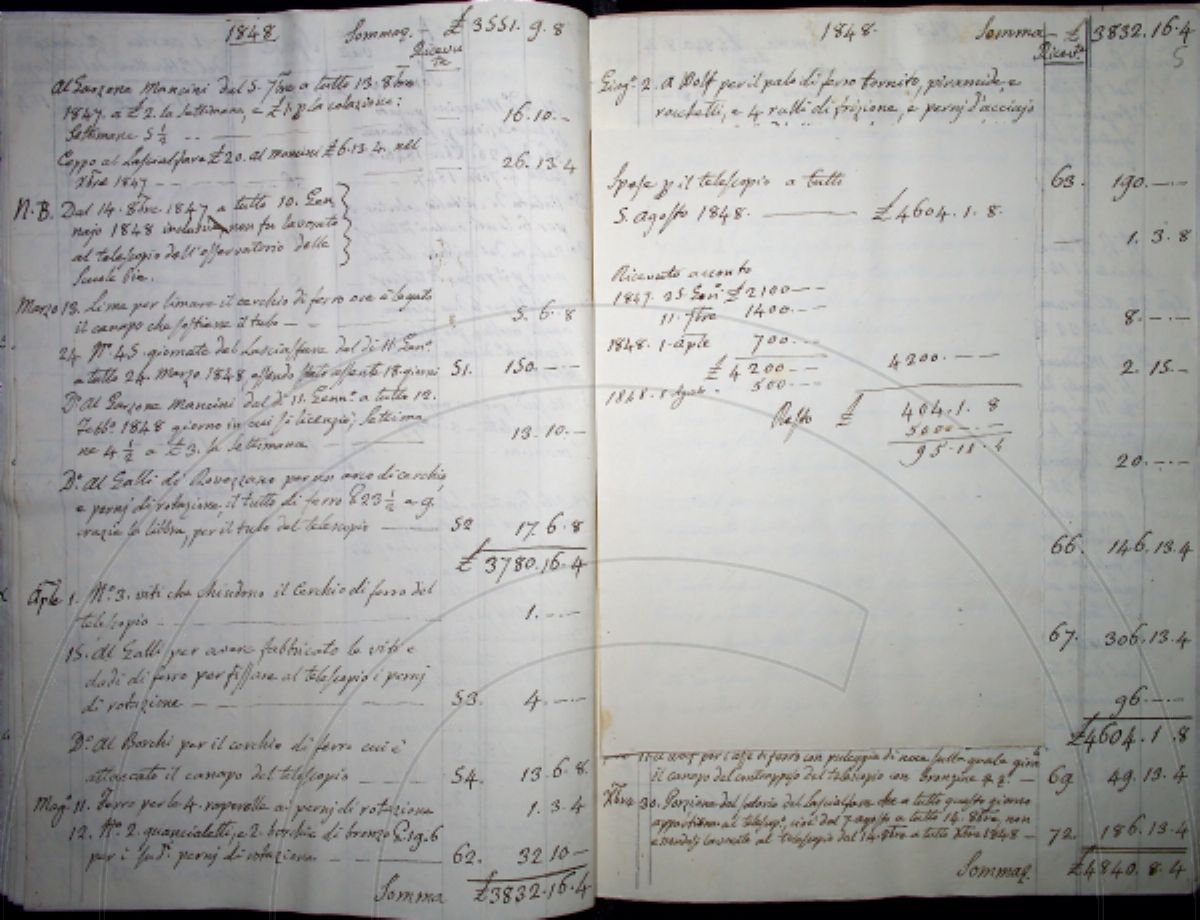 1848 Sommaz. £ 3551. 9. 8
Ricevu
te
Al Garzone Mancini dal 5. 7bre a tutto 13. 8bre
1847. a £ 2. la Settimana, e £ 1 p la colazione:
Settimane 5 ½ 16. 10. -
Ceppo al Lascialfare £ 20. al Mancini £ 6. 13. 4. nel
Xbre 1847 26. 13. 4
N. B. Dal 14. 8bre. 1847 a tutto 10. Gen
najo 1848 non fu lavorato
al telescopio dell'osservatorio delle
Scuole Pie.
Marzo 18. Lima per limare il cerchio di ferro ove è legato
il canapo che sostiene il tubo 5. 6. 8
24. N.º 45. giornate del Lascialfare dal di 11. Genº.
a tutto 24. Marzo 1848 essendo stato assente 18. giorni 51. 150. - -
Dº. Al Garzone Mancini dal di 11. Gennº. a tutto 12.
Febbº. 1848 giorno in cui si licenziò, Settima
ne 4 ½ a £ 3. la Settimana 13. 10. -
Dº. Al Galli di Rovezzano per un arco di cerchio
e pernj di rotazione, il tutto di ferro 23 ½ a 9.
crazie la libbra, per il tubo del telescopio 52 17. 6. 8
£ 3780. 16. 4
Aple 1. Nº. 3. viti che chiudono il Cerchio di ferro del
telescopio 1. - -
15. Al Galli per avere fabbricato le viti e
dadi di ferro per fissare al telescopio i pernj
di rotazione 53. 4. - -
Dº. Al Borchi per il cerchio di ferro cui è
attaccato il canapo del telescopio 54. 13. 6. 8.
Magº 11. Ferro per le 4. raperelle ai pernj di rotazione 1. 3. 4
12. Nº. 2. guancialetti, e 2. borchie di bronzo
per i sudi. pernj di rotazione 62. 32 10 -
Somma £ 3832. 16. 4
1848. Somma £ 3832. 16. 4
Ricevte.
5
Giugº. 2. A Wolf per il palo di ferro tornito, piramide, e
rocchetti, e 4 rulli di frizione, e pernj d'acciajo
63. 190. - -
Spese p il telescopio a tutto
5. Agosto 1848. £ 4604. 1. 8.
1. 3. 8
Ricevuto acconto
1847. 25. Genº. £ 2100 - -
11. 7bre 1400. - - 8. - -
1848. 1. aple 700. - -
£ 4200 - - 4200. - - 2. 15 -
1848. 1 Agosto 500 - -
Resto £ 404. 1. 8
500 - -
95. 18. 4
20. - -
66. 146. 13. 4
67. 306. 13. 4
96. - -
£ 4604. 1. 8
il canapo del contrappeso del telescopio con bronzine 69 49. 13. 4
Xbre 30. Porzione del salario del Lascialfare che a tutto questo giorno
appartiene al telescº. cioè dal 7 agosto a tutto 14. 8bre, non
lavorato al telescopio dal 14. 8bre a tutto Xbre 1848 72. 186. 13. 4
Sommaz. £ 4840. 8. 4